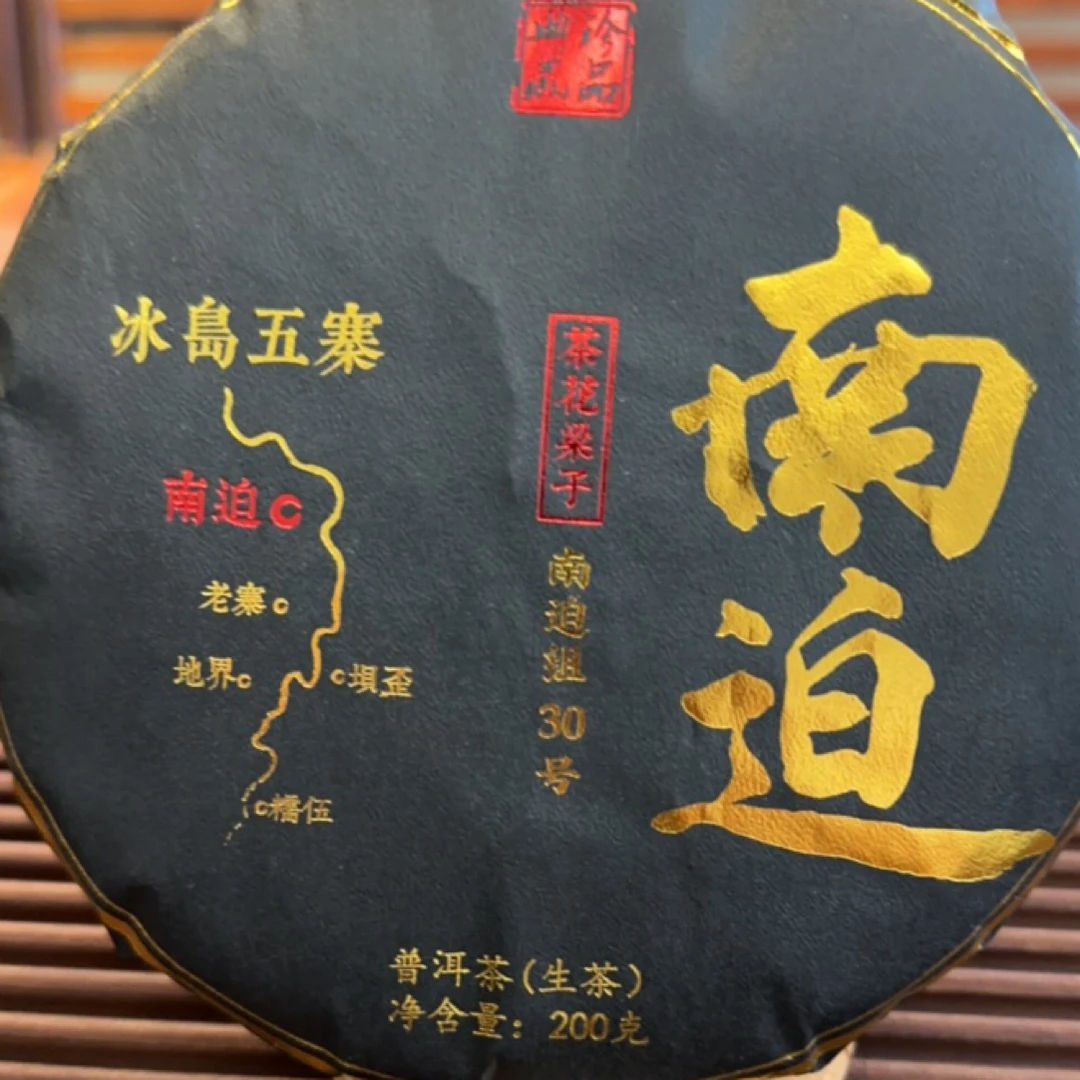 珍品
南迫
茶花梁子
南迫组30号
冰島五寨
南迫
老寨
地界
坝歪
糯伍
普洱茶(生茶)
净含量:200克